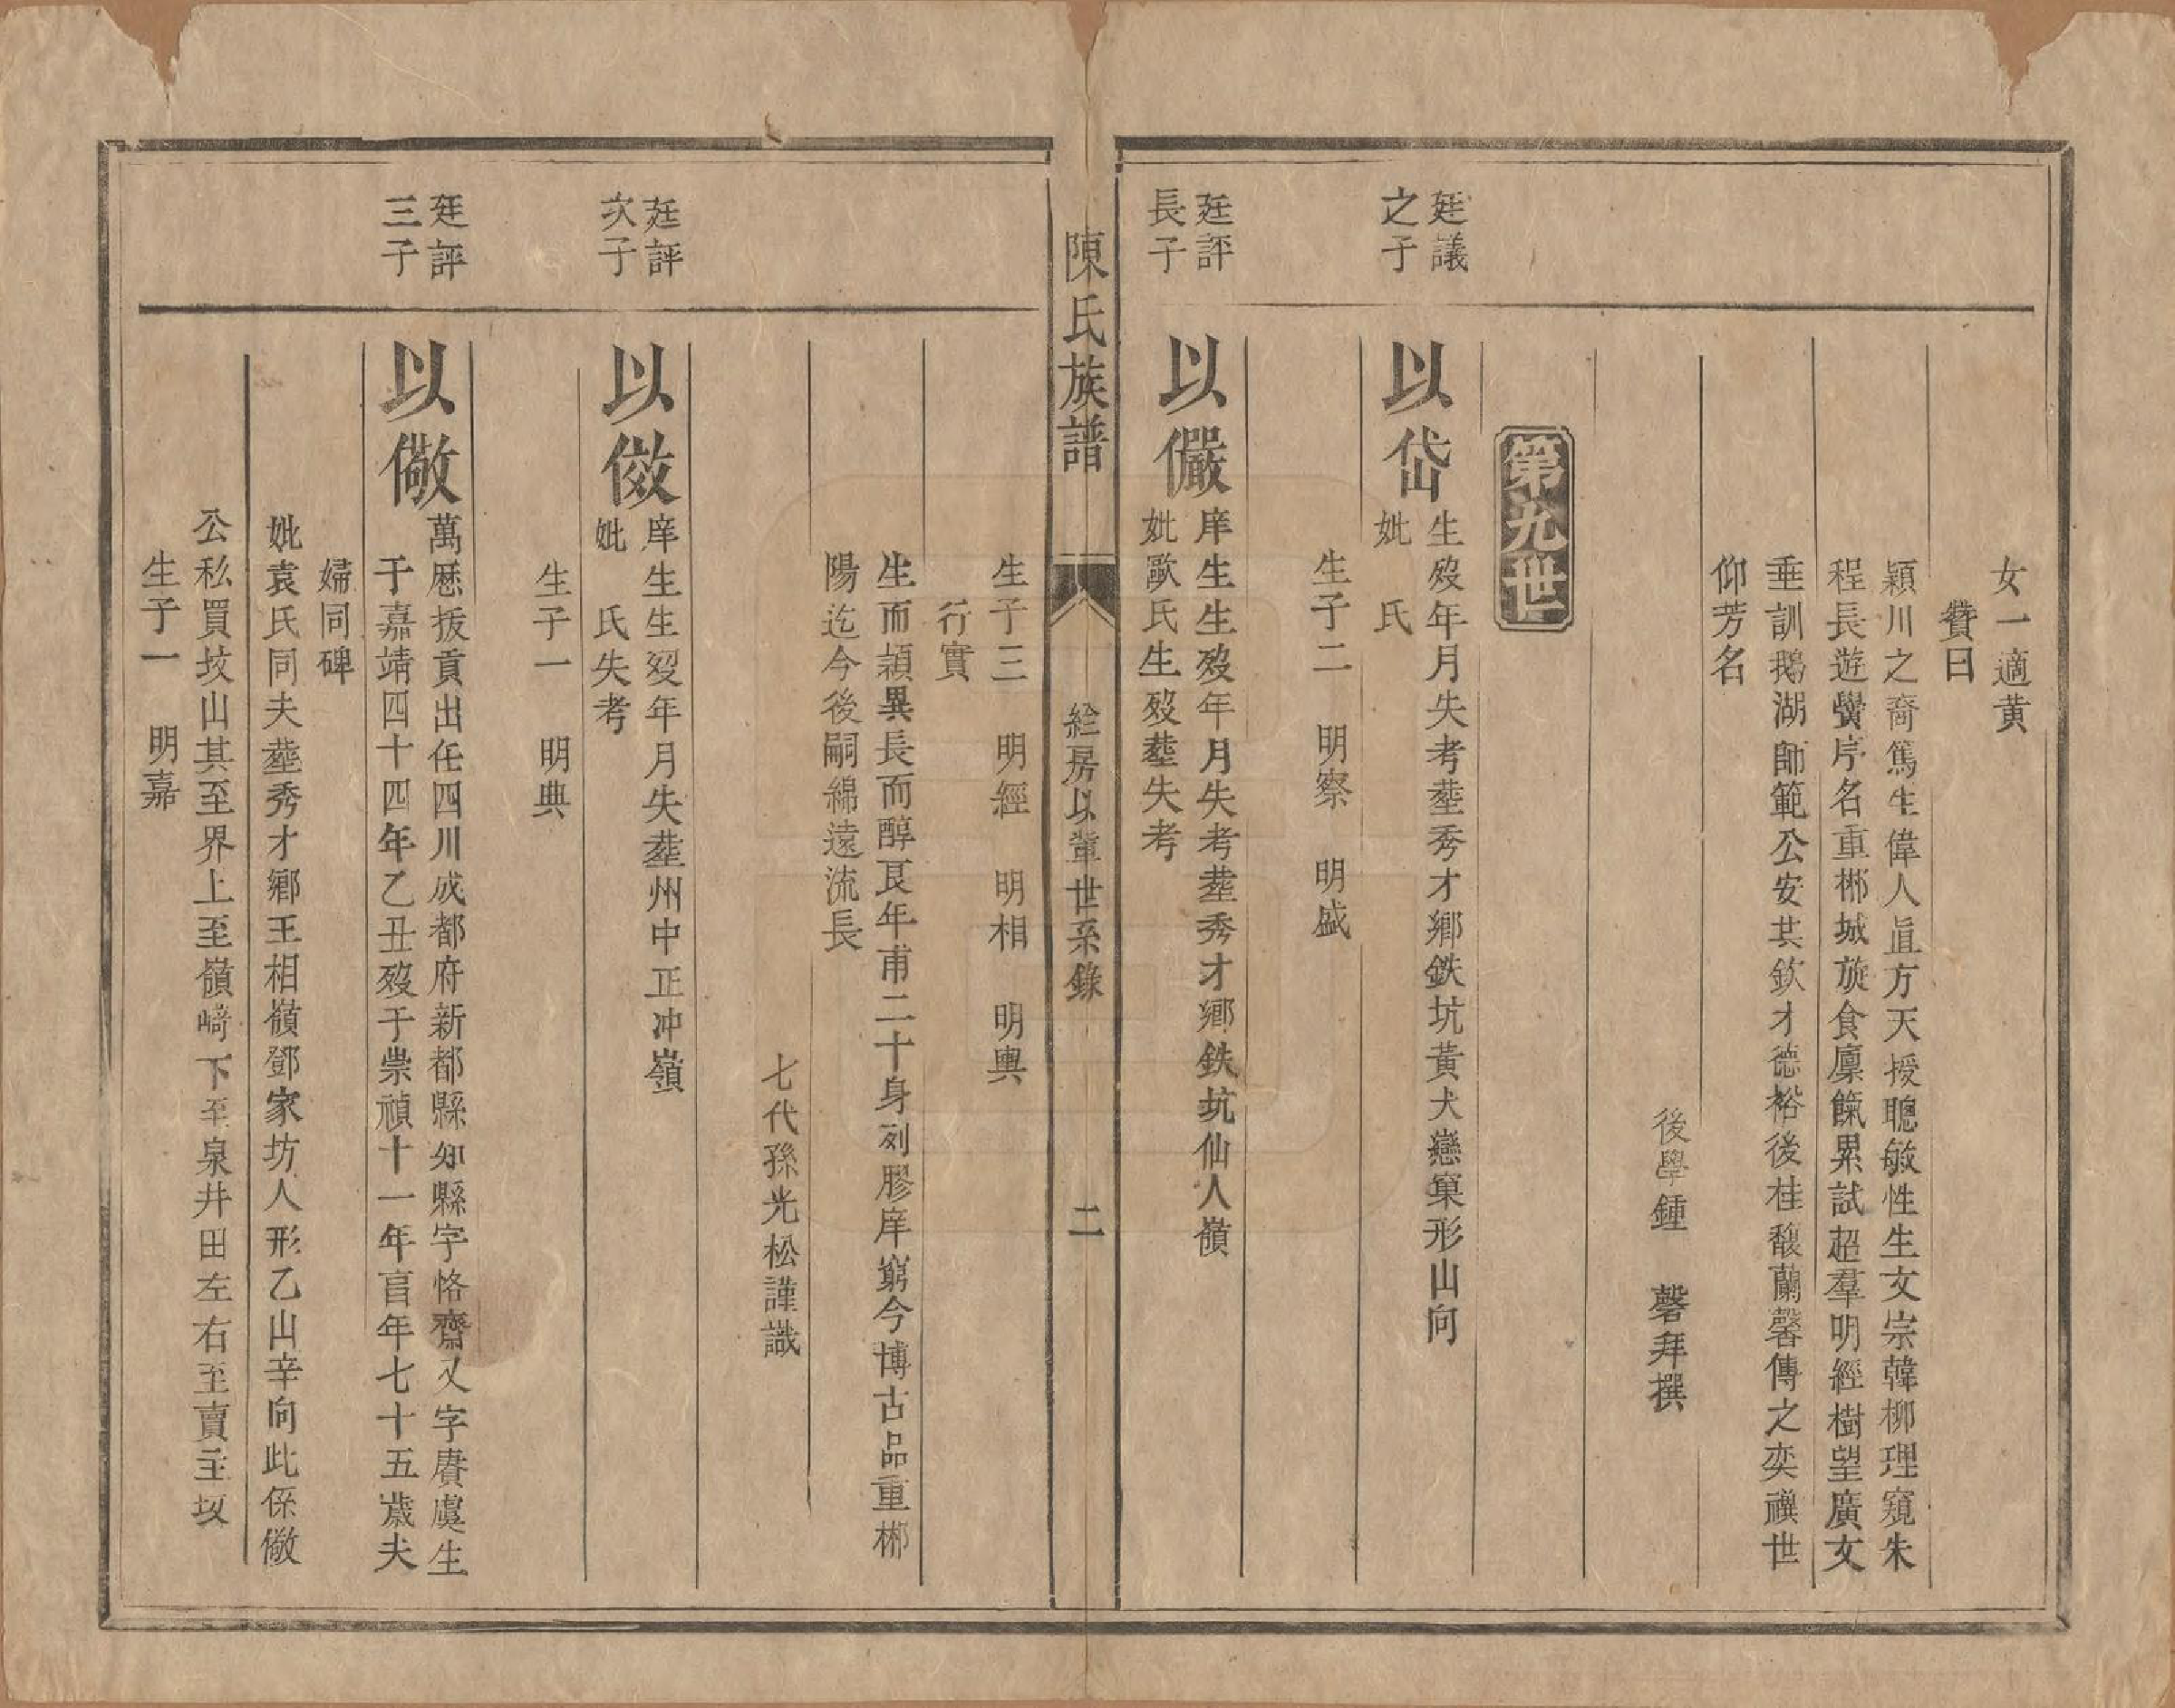 女一適黃
贊曰
潁川之裔篤生偉人眞方天授聰敏性生文宗韓柳理窺朱
程長遊黌序名重郴城旋食廩餼累試超羣明經樹望廣文
垂訓鵝湖師範公安其欽才德裕後桂馥蘭馨傳之奕禩世
仰芳名
後學鍾 磬拜撰
第九世
廷議
之子
以岱
生歿年月失考塟秀才鄉鉄坑黃犬戀窠形山向
妣 氏
生子二 明察 明盛
廷評
長子
以儼
庠生生歿年月失考塟秀才鄉鉄坑仙人嶺
妣歐氏生歿塟失考
陳氏族譜
絵房以輩世系錄
二
生子三 明經 明相 明興
行實
生而穎異長而醇良年甫二十身列膠庠窮今博古品重郴
陽迄今後嗣綿遠流長
七代孫光松謹識
廷評
次子
以儆
庠生生歿年月失塟州中正冲嶺
妣 氏失考
生子一 明典
廷評
三子
以儆
萬厯拔貢出任四川成都府新都縣知縣字恪齋又字賡虞生
于嘉靖四十四年乙丑歿于崇禎十一年亯年七十五歲夫
婦同碑
妣袁氏同夫塟秀才鄉王相嶺鄧家坊人形乙山辛向此係儆
公私買坟山其至界上至嶺崎下至泉井田左右至賣主坟
生子一 明嘉